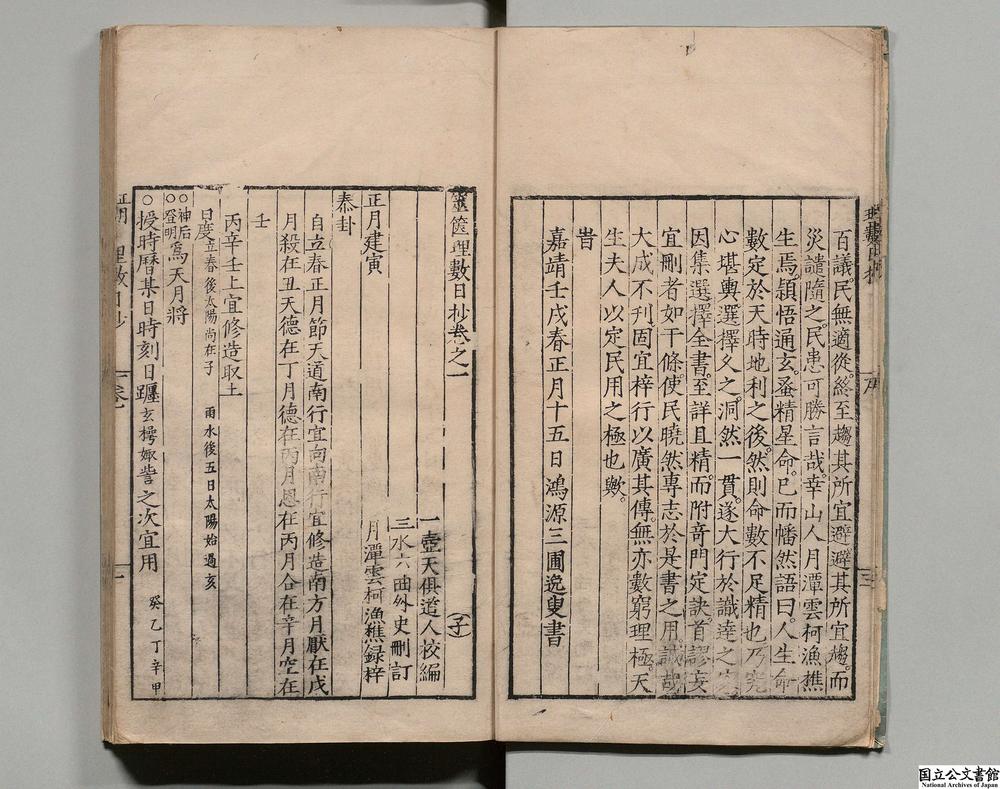 百議民無適從終至趨其所宜避避其所宜趨而
災譴隨之民患可勝言哉幸山人月潭雲柯漁樵
生焉頴悟通玄蚤精星命已而幡然語曰人生命
數定於天時地利之後然則命數不足精也乃究
心堪輿選擇久之洞然一貫遂大行於識達之
因集選擇全書至詳且精而附竒門定訣首謬妄
宜刪者如干條使民曉然專志於是書之用誠哉
大成不刋固宜梓行以廣其傳無亦數窮理極天
生夫人以定民用之極也歟
旹
嘉靖壬戌春正月十五日鴻源三圃逸叟書
三
理數日抄卷之一
一壺天俱道人校編
三水六曲外史刪訂
月潭雲柯漁樵録梓
子
正月建寅
泰卦
自立春正月節天道南行宜向南行宜修造南方月厭在戌
月殺在丑天德在丁月德在丙月恩在丙月合在辛月空在
壬
丙辛壬上宜修造取土
日度立春後太陽尚在子 雨水後五日太陽始過亥
○神后
○登明爲天月將
○授時曆某日時刻日躔玄枵娵訾之次宜用 癸乙丁辛甲
理數日抄 卷一 一
国立公文書館
National Archives of Japan